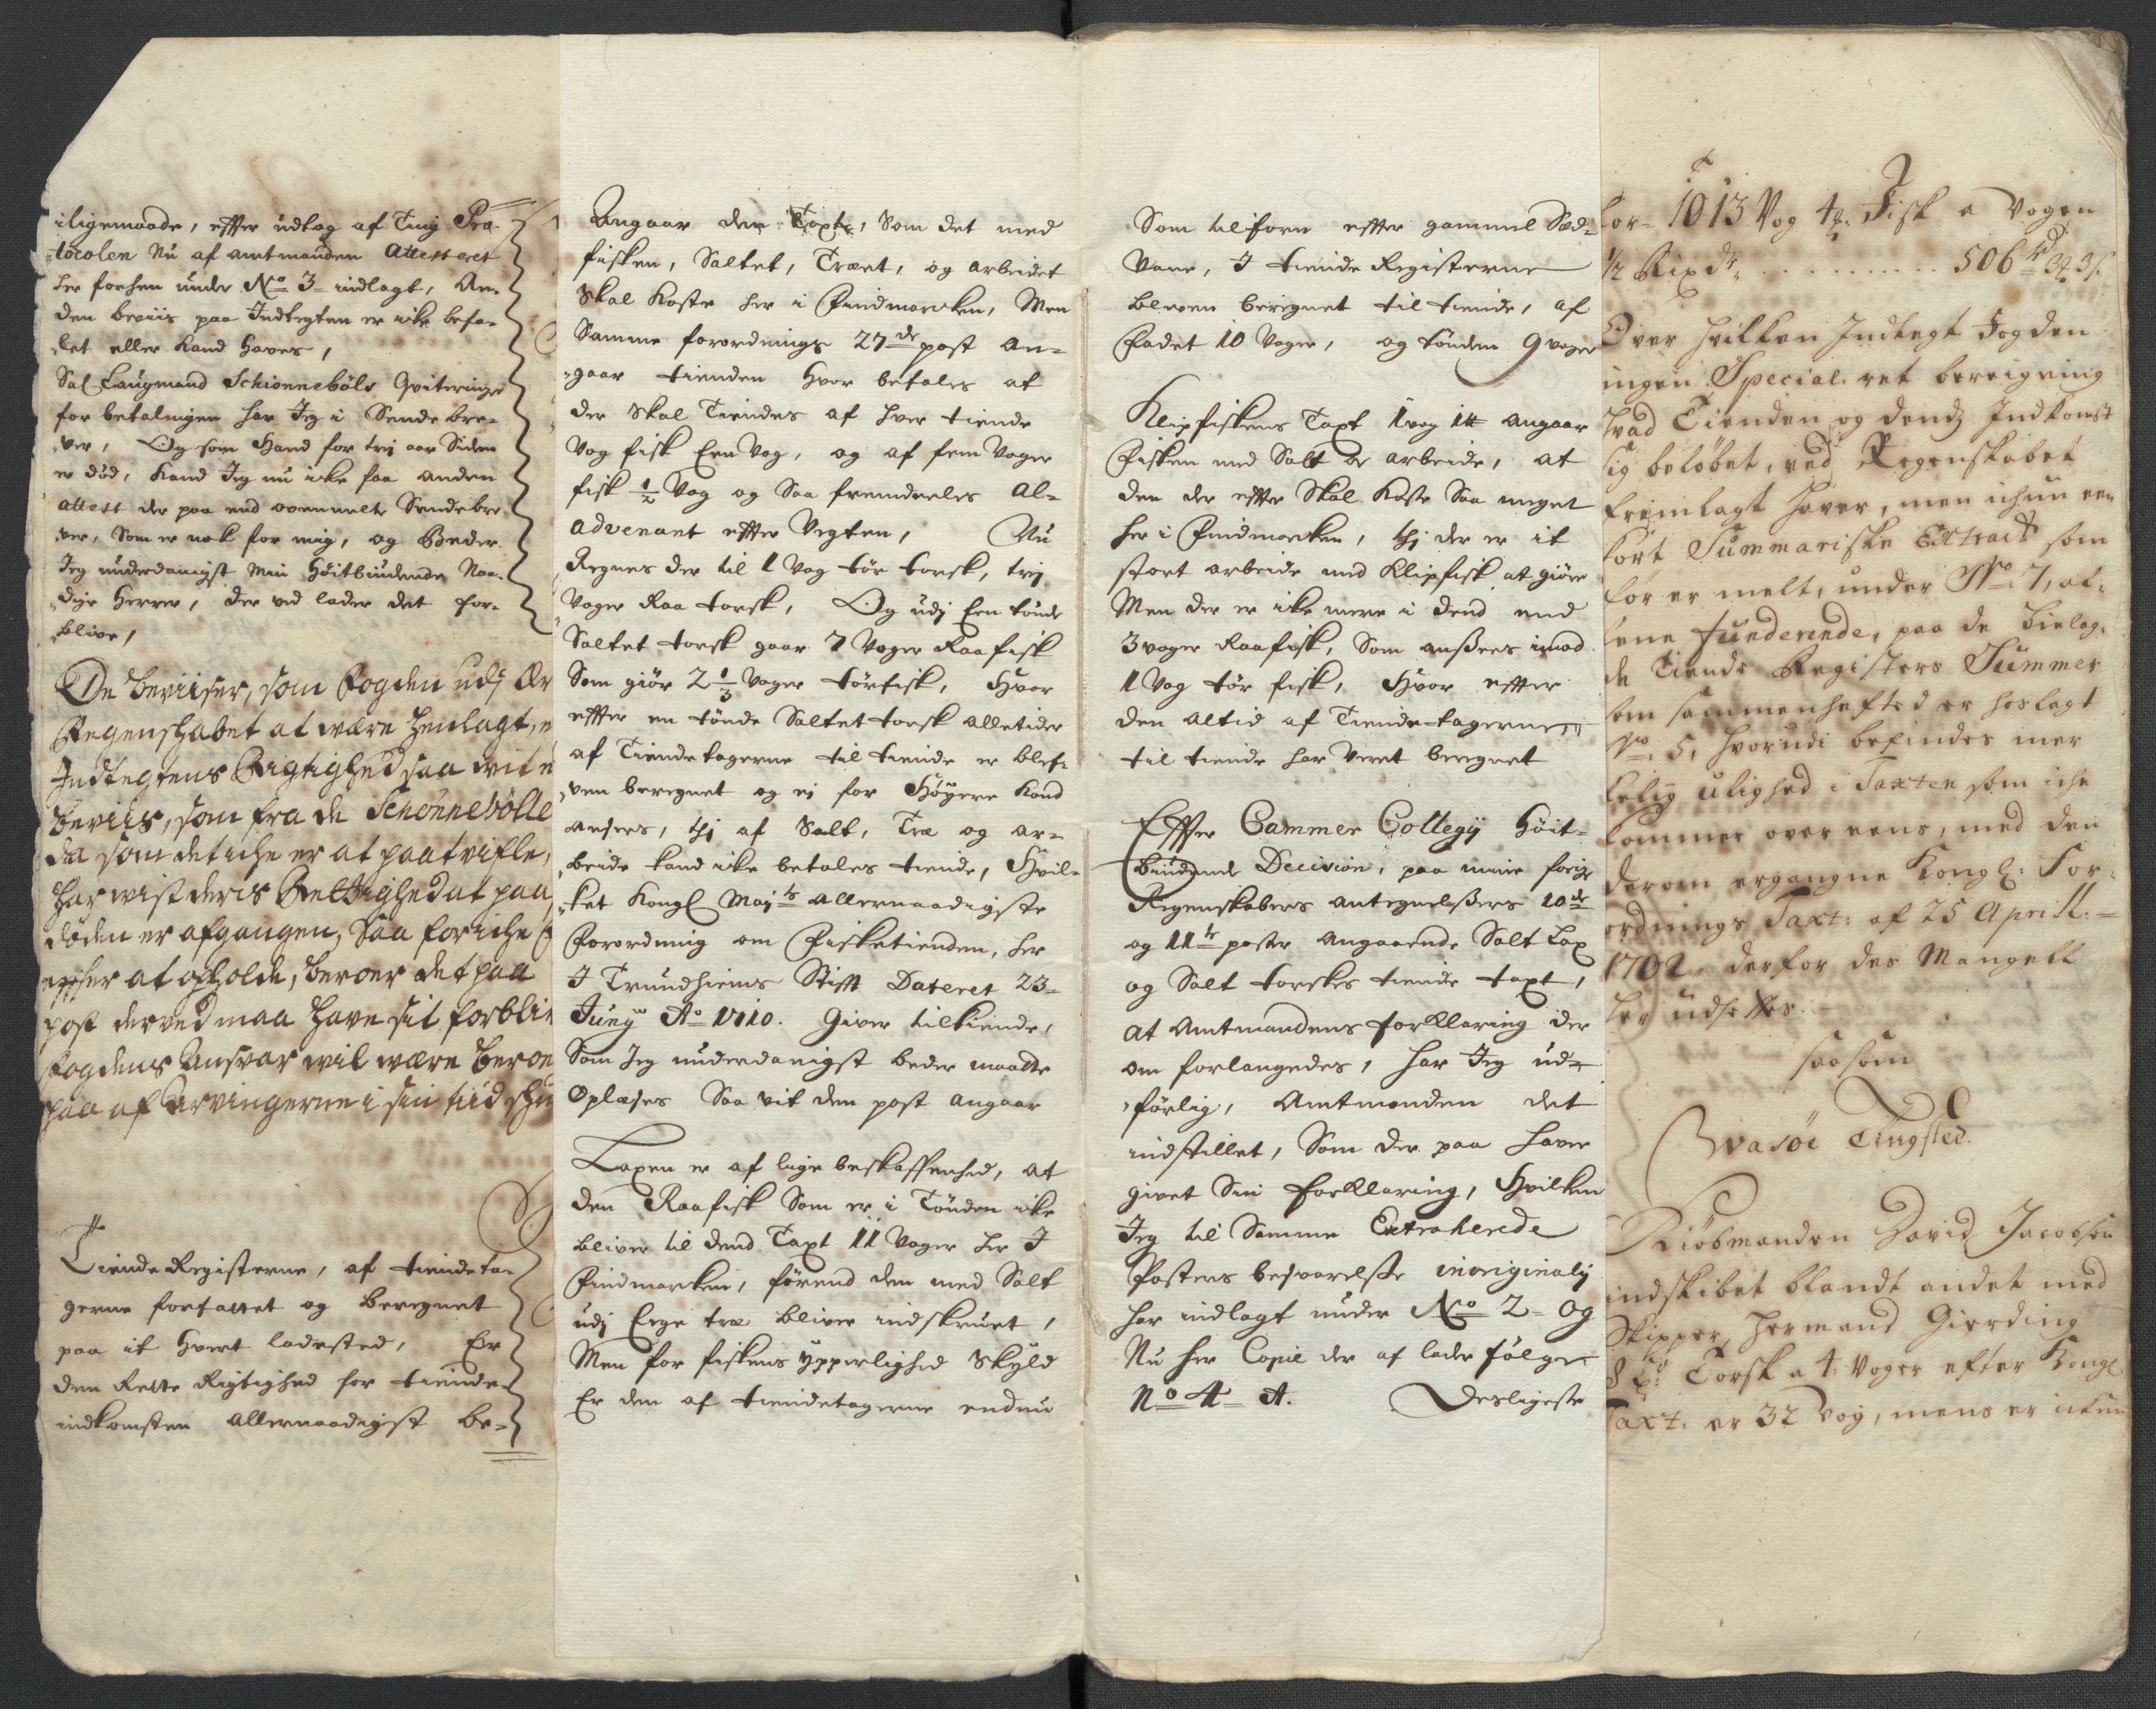 iligemaade, effter udtog af Ting Pro-
tocolen Nu af amtmanden Attesteret
her forhen under No 3 indlagt, An-
den beviis paa Indtegten er icke befa-
let eller kand haves,
Sal. Laugmand Schionnebøls Qviteringer
for betalingen har Jeg i Sendebre-
ver, Og som Hand for trej aar Siden
er død, kand Jeg nu icke faa anden
attest der paa end ovenmelte Sendebre-
ver, Som er nok for mig, og Beder
Jeg underdanigst Min Høitbiudende Naa-
dige Herrer, der ved lader det for-
blive,
De beviiser, som Fogden udj
Regenschabet at være henlagt,
Indtegtens Rigtighed saa vit
beviis, som fra de Schønnebølle
da som det iche er at paatvifle,
har vist deris Rettighed at paa
døden er afgangen, Saa for iche
at opholde, beroer det paa
post derved maa have sit forbli
Fogdens Ansvar vil være beroe
paa af Arvingerne i sin tiid
Tiende Registerne, af tiendeta-
gerne forfattet og beregnet
paa it hvert ladested, Er
den Rette Rigtighed for tiende-
indkomsten allernaadigst be-
Angaar den Taxt, Som det med
fisken, Saltet, Træet, og arbeidet
Skal koste her i Findmarcken, Men
Samme forordnings 27de post an-
gaar tienden hvor befales at
der Skal Tiendes af hver tiende
Vog fisk Een Vog, og af fem Voger
fisk 1/2 Vog og Saa fremdeeles al-
advenant effter Vegten, Nu
Regnes der til 1 Vog tør torsk, trej
Voger Raa torsk, Og udj Een tønde
Saltet torsk gaar 7 Voger Raafisk
Som giør 2 1/3 Voger tørfisk, Hvor
effter en tønde Saltet torsk alletider
af Tiendetagerne til tiende er blef-
ven beregnet og ej for Høyere kand
ansees, thj af Salt, Træ og ar-
beide kand icke betales tiende, Hvil-
ket Kongl Mayts allernaadigste
Forordning om Fisketienden, her
I Trundhiems Stift Dateret 23
Junij Ao 1710. Giver tilkiende,
Som Jeg underdanigst beder maatte
Oplæses Saa vit den post angaar
Laxen er af lige beskaffenhed, at
den Raafisk Som er i Tønden icke
bliver til dend Taxt 11 Voger her I
Findmarcken, førend den med Salt
udj Eege træ bliver indskruet,
Men for fiskens ypperlighed Skyld
Er den af tiendetagerne endnu
Som tilforn effter gammel Sæd-
vane, I tiende Registerne
bleven beregnet til tiende, af
Fadet 10 Voger, og tønden 9 voger
Klipfiskens Taxt 1 vog 1 angaar
Fisken med Salt og arbeide, at
den der effter Skal koste Saa meget
her i Findmarcken, thj der er it
stort arbeide med Klipfisk at giøre
Men der er icke mere i dend end
3 voger Raafisk, Som ansees imod
1 Vog tør fisk, Hvor effter
den altid af Tiendetagerne
til tiende har veret beregnet
Effter Cammer Collegij Høit-
biudende Decision, paa mine forige
Regenskabers antegnelssers 10de
og 11te poster angaaende Salt Lax
og Salt torskes tiende taxt,
at Amtmandens forklaring der
om forlanges, har Jeg ud-
førlig, Amtmanden det
indstillet, Som der paa haver
givet Sin forklaring, Hvilken
Jeg til Samme Extraherede
Posters besvarelsse in originalj
har indlagt under No 2 Og
Nu her Copie der af lader følge
No 4 A. Desligeste
for 1013 Vog 4 Fisk a Vogen
1/2 Rixdr. . . . . . . . . 506 3 3 s.
Over hvilken Indtegt Fogden
ingen Special ret bereigning
hvad Tienden og dends Indkomst
sig beløbet, ved Regenskabet
fremlagt haver, men ichun een
kort Summariske Extract som
før er melt, under No. 7, al-
lene funderende, paa de bielag-
de Tiende Registers Summer
som sammenhefted er hoslagt
No. 5, hvorudi befindes mer
kelig ulighed i Taxten som iche
kommer over eens, med den
derom ergangne Kongl. For-
ordnings Taxt: af 25 Aprill:
1702 derfor des Mangell
her udsettes.
saasom
Wasøe Tingsted.
Kiøbmanden David Jacobsen
indskibet blandt andet med
Skipper Hermand Gierding
8 Torsk a 4: Voger efter Kongl
Taxt: er 32 Vog, mens er ickun